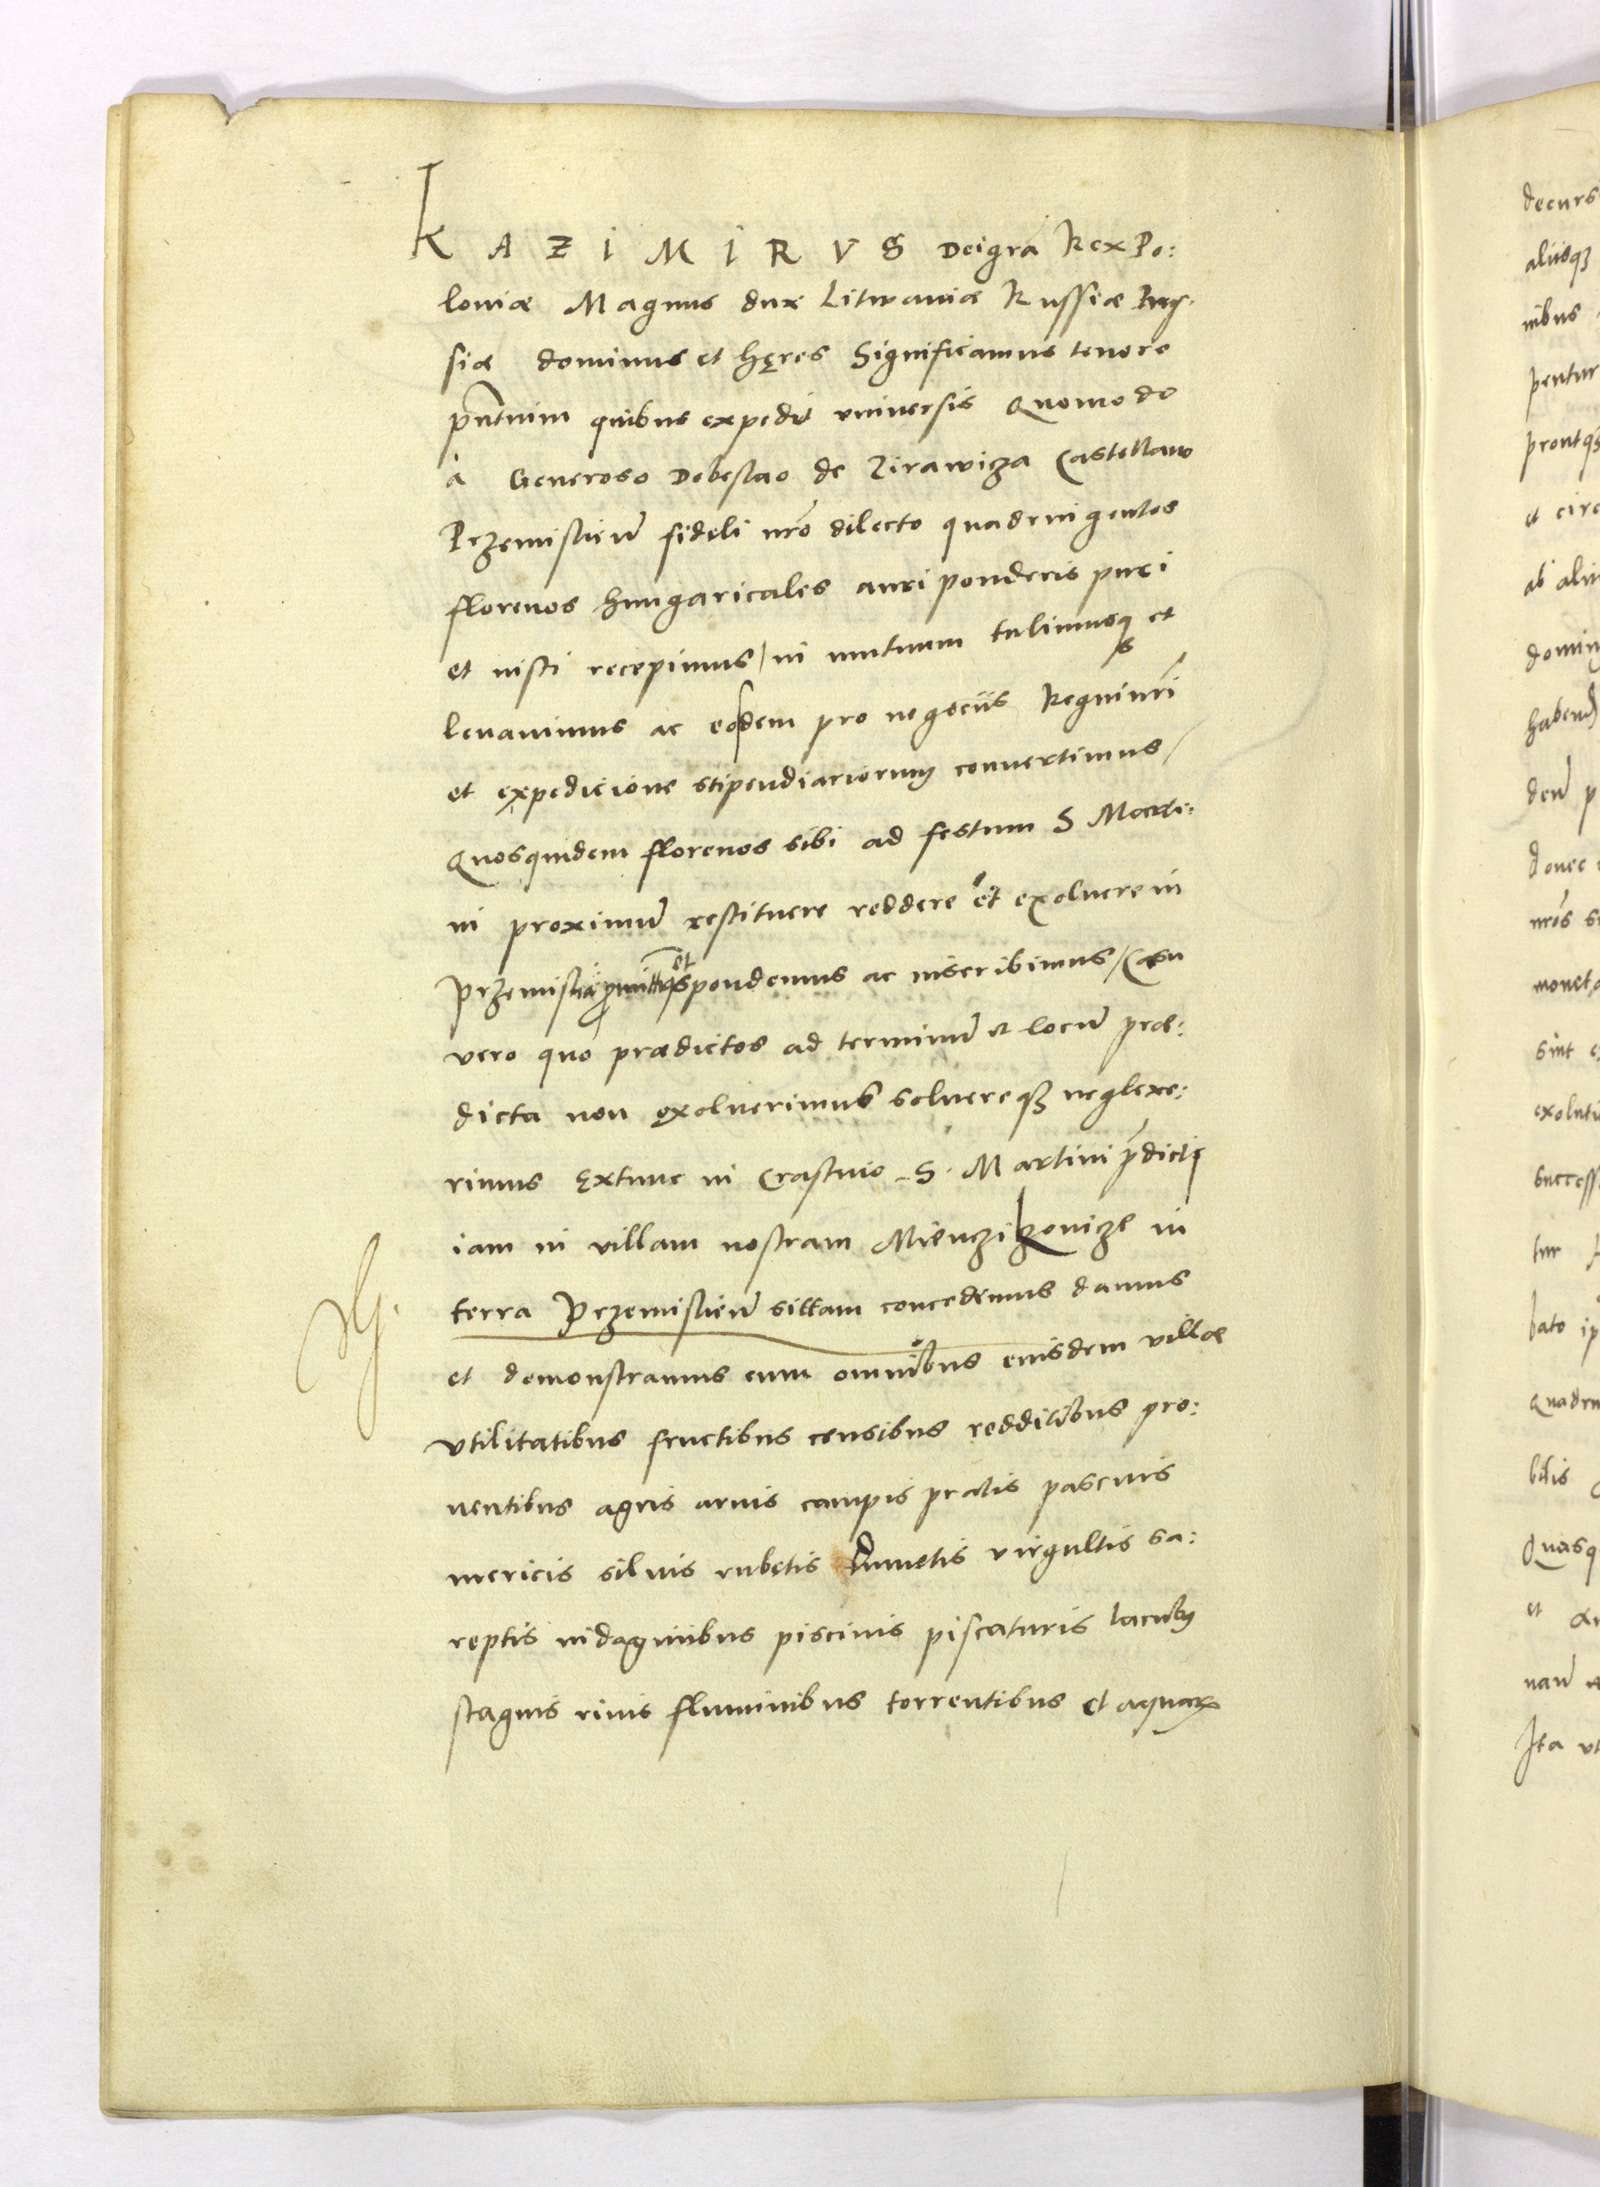 KAZIMIRVS Dei gra Rex Po:
loniæ Magnus dux Litwaniæ Russiæ Prus:
siæ dominus et hęres Significamus tenore
pñtium quibus expedit vniversis Quomodo
à Generoso Dobeslao de Zirawicza Castellano
Przemislień fideli nrō dilecto quadringentos
florenos hungaricales auri ponderis puri
et iusti recepimus / in mutuum tulimusq et
levavimus ac eosdem pro negociis Regni nrī
et expedicione stipendiariorum convertimus /
Quosquidem florenos sibi ad festum S Marti:
ni proximū restituere reddere et exolvere in
Przemislia promittimus et spondemus ac inscribimus / Casu
vero quo prædictos ad terminū et locū præ:
dicta non exolverimus solvereqz neglexe:
rimus Extunc in Crastino S. Martini p̄dicti
iam in villam nostram Mienczikovicze in
terra Przemislień sittam concedimus damus
et demonstramus cum omnibus eiusdem villæ
vtilitatibus fructibus censibus redditibus pro:
ventibus agris arvis campis pratis pascuis
mericis silvis rubetis dumetis virgultis sa:
reptis indaginibus piscinis piscaturis lacubus
stagnis rivis fluminibus torrentibus et aquarum
decurs
aliisqz
nibus
pentur
prontqz
et circ
ab aliis
domin
habend
deñ p
donec
nros
monet
sint
exolut
success
tur
bato ip
quadrin
bilis
Quasq
et
nañ
Ita vt